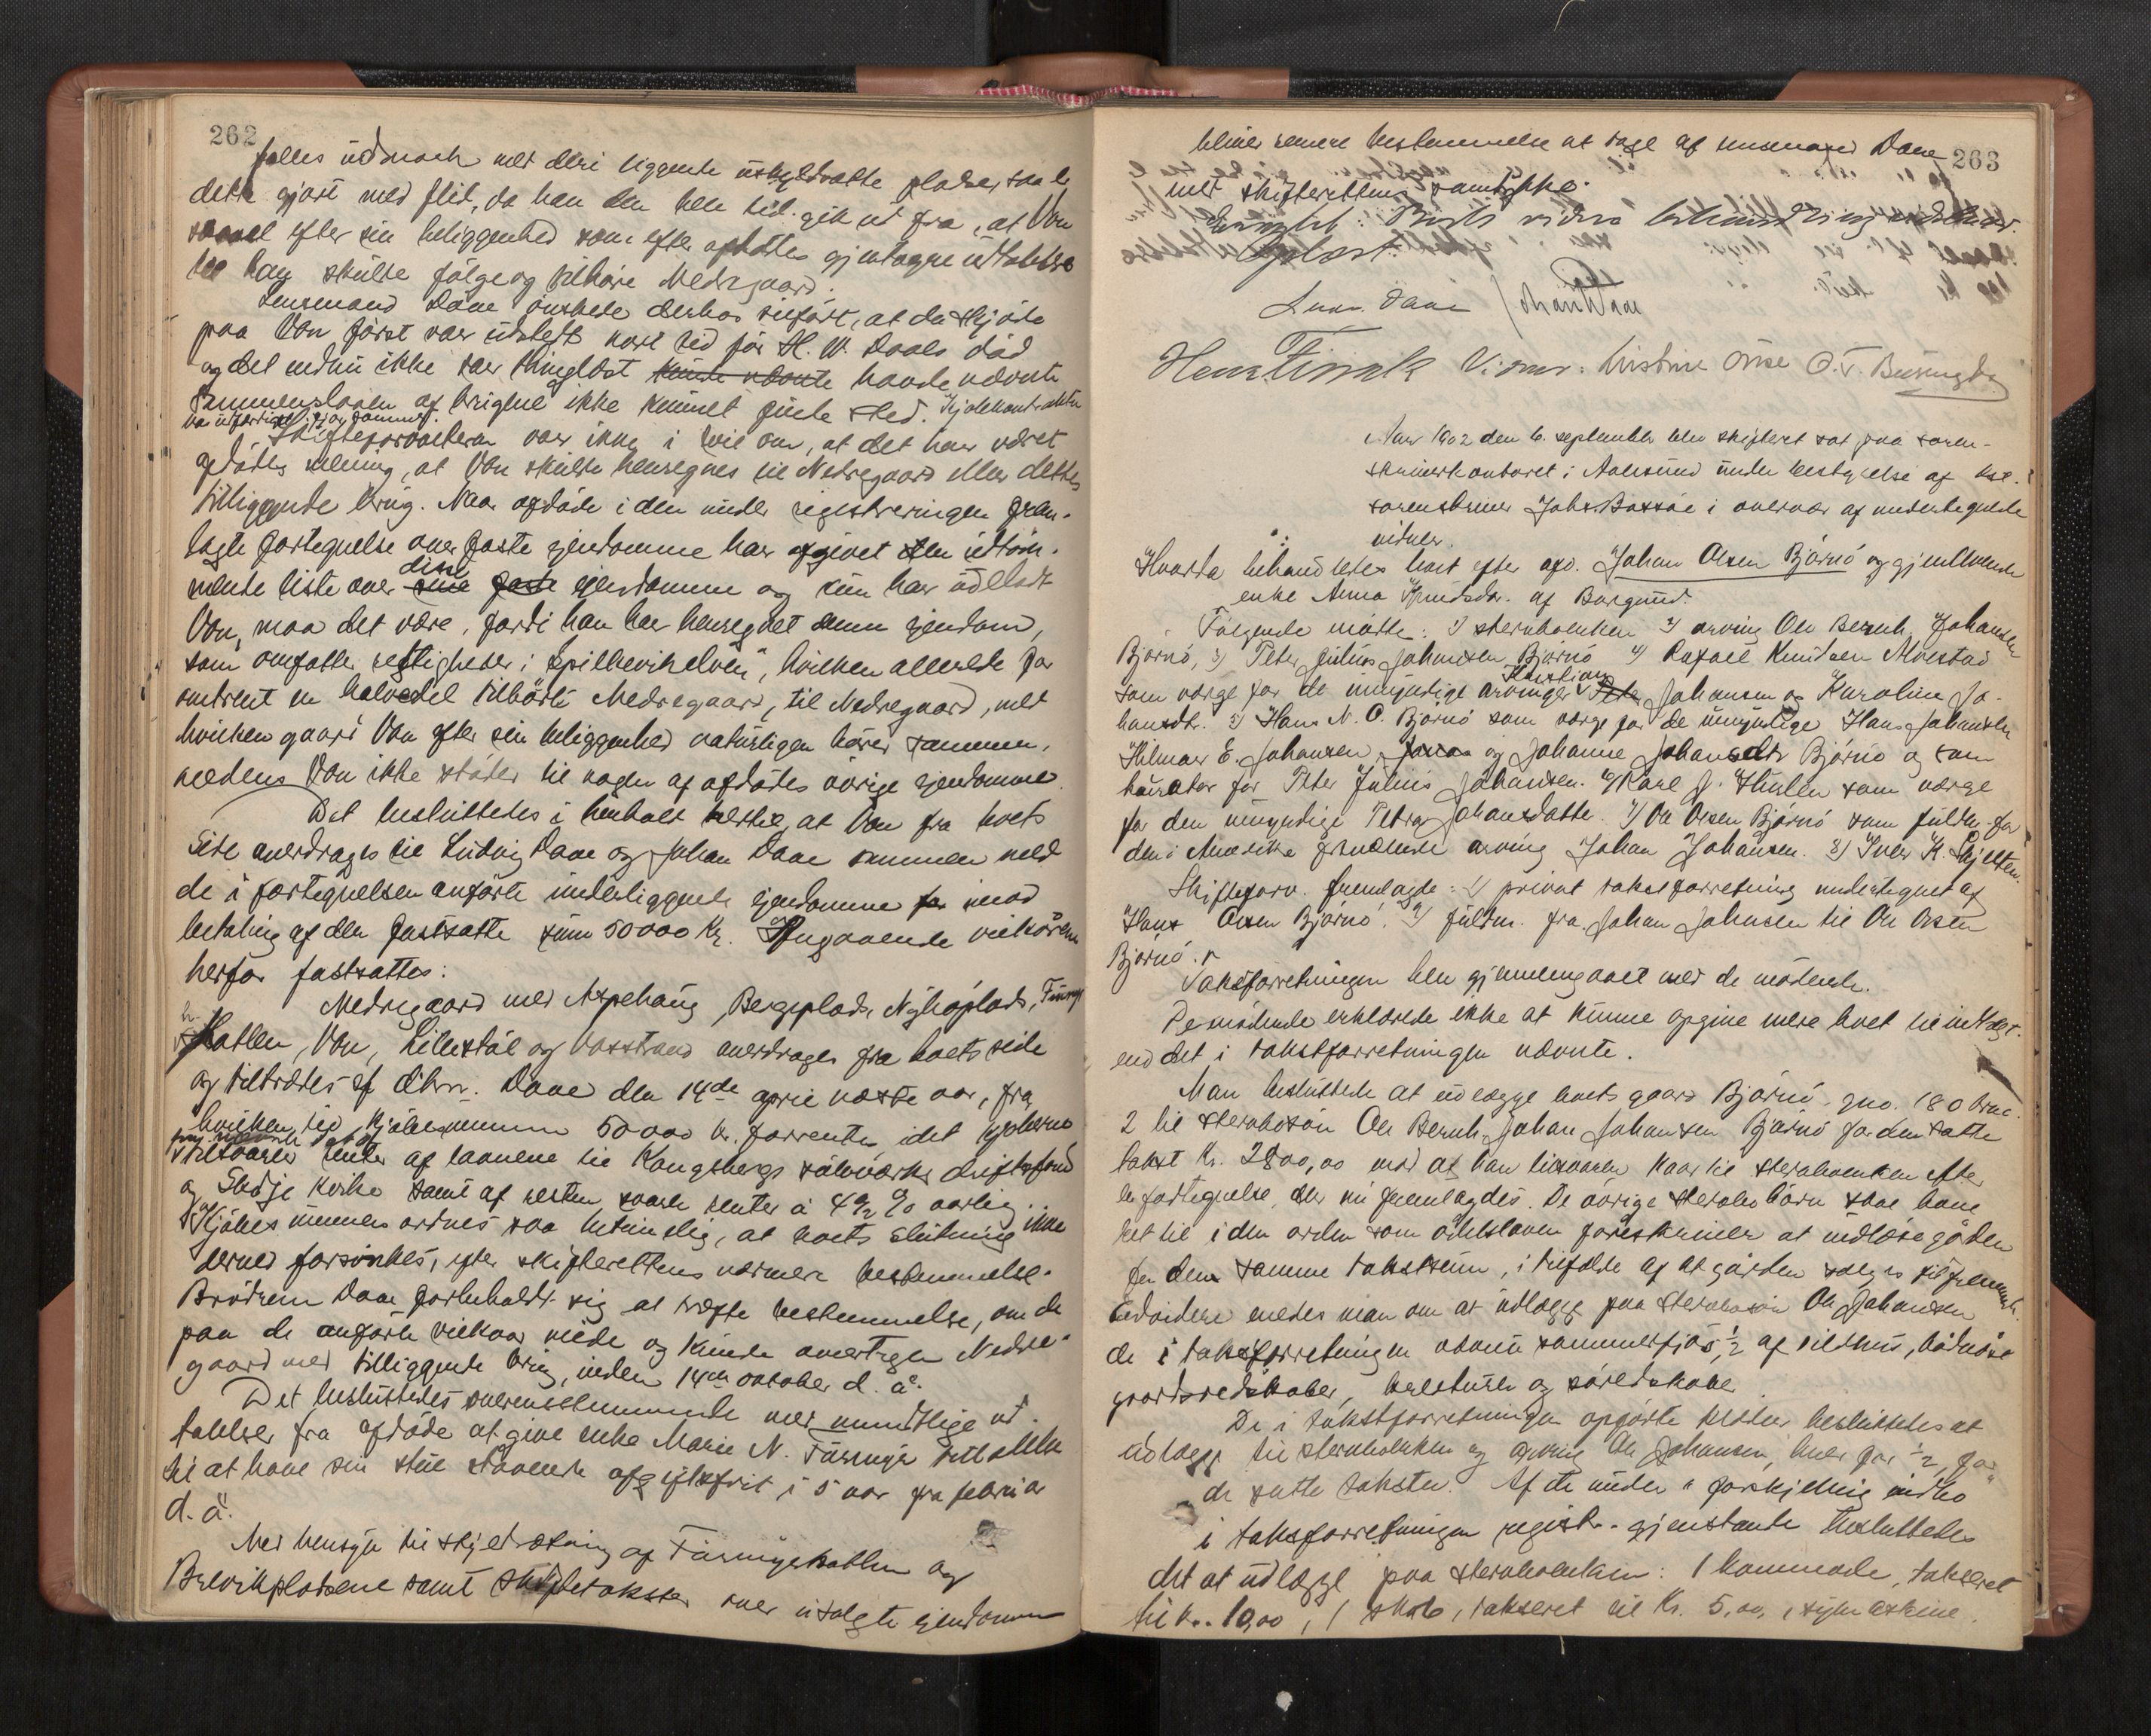 262
fælles udmark med deri liggende uskyldsatte pladse, saa er
dette gjort med flid, da han den hele tid gik ud fra, at Von
saavel efter sin beliggenhed som efter afdødes gjentagne udtalelser
skulde følge og tilhøre Nedregaard.
Lensmand Daae ønskede derhos tilført, at da skjøde
paa Von først var udstedt kort tid før H. W. Daaes død
og det endnu ikke var thinglæst kunde nævnte havde nævnte
sammenslaaen af brugene ikke kunnet finde sted. Kjøbekontrakten
Skifteforvalteren var ikke i tvil om, at det har været
afdødes mening, at Von skulde henregnes til Nedregaard eller dettes
tilliggende brug. Naar afdøde i den under registreringen frem-
lagte fortegnelse over faste eiendomme har afgivet den udtøm-
mende liste over sine faste disse eiendomme og kun har udeladt
Von, maa det være, fordi han har henregnet denne eiendom,
som omfatter rettigheder i "Spillkevikelven", hvilken allerede for
omtrent en halvedel tilhørte Nedregaard, til Nedregaard, med
hvilken gaard Von efter sin beliggenhed naturligen hører sammen,
medens Von ikke støder til nogen af afdødes øvrige eiendomme.
Det besluttedes i henhold hertil, at Von fra boets
side overdrages til Ludvig Daae og Johan Daae sammen med
de i fortegnelsen anførte underliggende eiendomme for mod
betaling af den fastsatte sum 50000 Kr. Angaaende vilkårene
herfor fastsattes:
Nedregaard med Aspehaug, Bergeplads, Nyhøiplads,
Hatlen, Von, Lillestøl og Vasstrand overdrages fra boets side
og tiltrædes af dhrr. Daae den 14de april næste aar, fra
hvilken tid kjøbesummen 50000 kr. forrentes idet kjøberne
tilsvarer renter af laanene til Kongsbergs sølvværks driftsfond
og Skodje kirke samt af resten svarer renter à 4½ % aarlig.
Kjøbesummen ordnes saa betimelig, at boets slutning ikke
derved forsinkes, efter skifterettens nærmere bestemmelse.
Brødrene Daae forbeholdt sig at træffe bestemmelse, om de
paa de anførte vilkaar vilde og kunde overtage Nedre-
gaard med tilliggende brug, inden 14de october d. å.
Det besluttedes overensstemmende med mundtlige ud-
talelser fra afdøde at give enke Marie N. Furmyr tilladelse
til at have sin stue staaende afgiftsfrit i 5 aar fra februar
d. å.
Med hensyn til skyldsætning af Furmyrhatlen og
Brevikpladsene samt skiftetakster over usolgte eiendomme
263
bliver senere bestemmelse at tage af lensmand Daae
med skifterettens samtykke.
Eragtet: Boets videre behandling udsættes.
Oplæst.
Ludv. Daae Johan Daae
Vidner: Kristine Onse O. T. Buringdal
Aar 1902 den 6. september blev skifteret sat paa soren-
skriverkontoret i Aalesund under bestyrelse af kst.
sorenskriver Johs. Baxaae i overvær af undertegnede
vidner.
Hvorda behandledes boet efter afd. Johan Olsen Bjørnø og gjenlevende
enke Anna Knudsdr. af Borgund.
Følgende mødte: 1) sterboenken 2) arving Ole Bernh. Johansen
Bjørnø, 3) Peter Julius Johansen Bjørnø 4) Rafael Knudsen Alvestad
som værge for de umyndige arvinger Kristian Johansen og Karoline Jo-
hansdr. 5) Hans N. O. Bjørnø som værge for de umyndige Hans Johansen
Hilmar E. Johansen, og Johanne Johansdtr Bjørnø og som
kurator for Peter Julius Johansen. 6) Karl J. Hulen som værge
for den umyndige Petra Johansdatter. 7) Ole Olsen Bjørnø som fuldm. for
den i Amerika fraværende arving Johan Johansen. 8) Iver K. Hjelten.
Skifteforv. fremlagte: 1) privat takstforretning undertegnet af
Hans Olsen Bjørnø. 2) fuldm. fra Johan Johnsen til Ole Olsen
Bjørnø.
Takstforretningen blev gjennemgaaet med de mødende.
De mødende erklærede ikke at kunne opgive mere boet til indtægt
end det i takstforretningen nævnte.
Man besluttede at udlægge boets gaard Bjørnø gno. 180 brno.
2 til sterbosøn Ole Bernh. Johan Johansen Bjørnø for den satte
takst Kr. 2800,00 mod at han tilsvarer kaar til sterboenken efter
en fortegnelse, der nu fremlagdes. De øvrige sterbobørn skal have
ret til i den orden som odelsloven foreskriver at indløse gården
for den samme takstsum, i tilfælde af at gården sælges til fremmede.
Endvidere enedes man om at udlægge paa sterbosøn Ole Johansen
de i takstforretningen nævnte sommerfjøs, ½ af sildhus, bådnøst
gaardsredskaber, hesteture og søredskaber.
De i takstforretningen opførte kister besluttedes at
udlægge til sterboenken og arving Ole Johansen, hver for ½, for
de satte takster. Af de under "forskjellig indbo"
i takstforretningen registr. gjenstande besluttedes
det at udlægge paa sterboenken: 1 kommode, takseret
til kr. 10,00, 1 skab, takseret til Kr. 5,00, 1 symaskine,